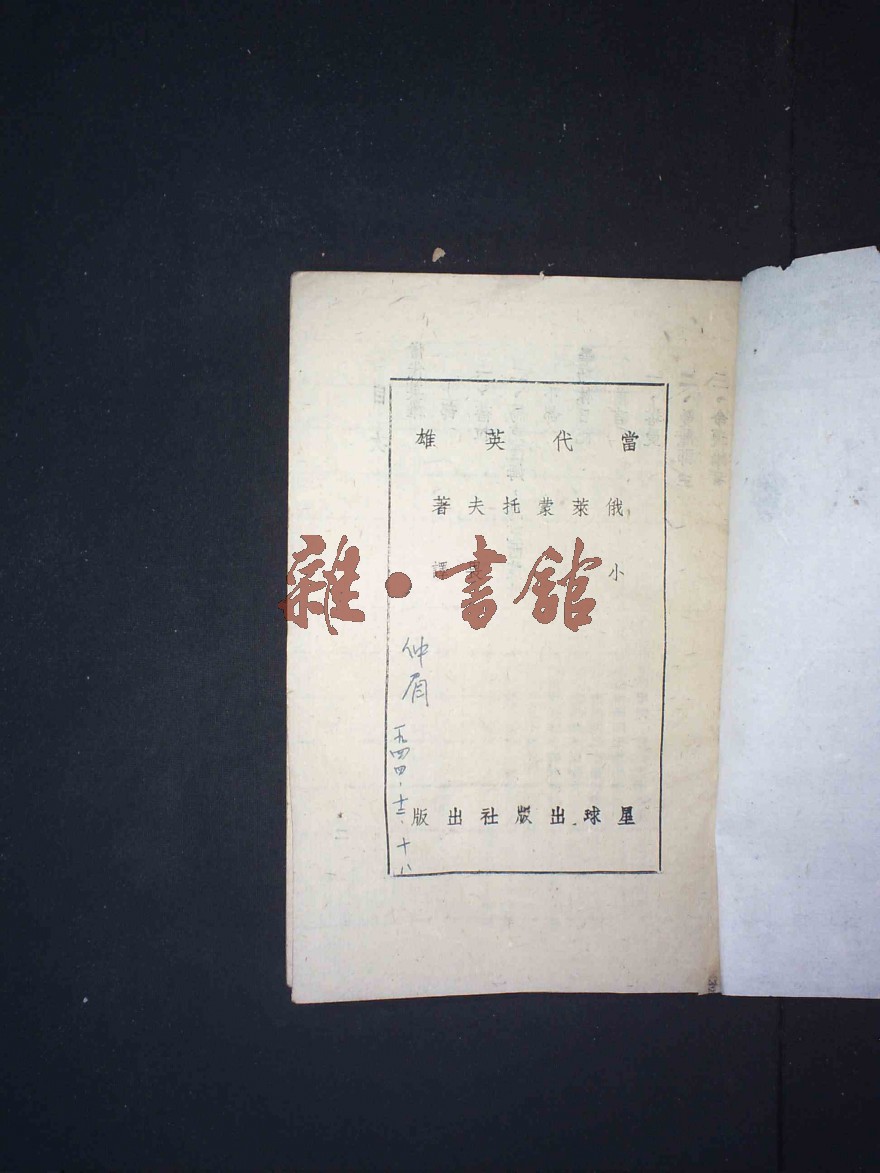 當代英雄
俄萊蒙托夫著
小 譯
雜·書館
仲
一九四四·十二·十八
星球出版社出版